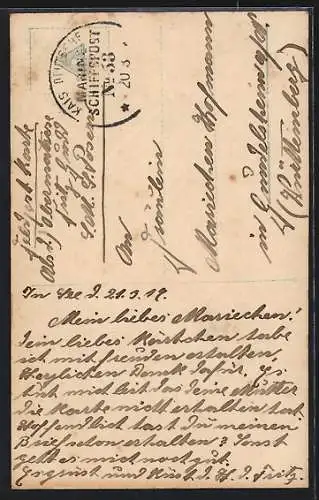 KAIS. DEUTSCHE
MARINE-
SCHIFFSPOST
No 38
* 20 3
Feldpostkarte
Abs. J.
Fritz
S.M.S. Posen
An
Fräulein
Mariechen Hofmann
in Gundelsheim
(Württemberg)
In See d. 21.3.17.
Mein liebes Mariechen!
Dein liebes Kärtchen habe
ich mit freuden erhalten,
Herzlichen Dank dafür, Es
tut mich leit das deine Mutter
die Karte nicht erhalten hat
Hoffendlich hast du meinen
Brief schon erhalten? Sonst
geht es mich noch gut.
Es grüst und Küst d. Fritz.